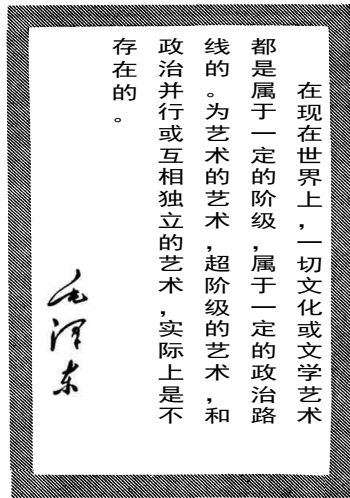 在现在世界上，一切文化或文学艺术
都是属于一定的阶级，属于一定的政治路
线的。为艺术的艺术，超阶级的艺术，和
政治并行或互相独立的艺术，实际上是不
存在的。
毛泽东